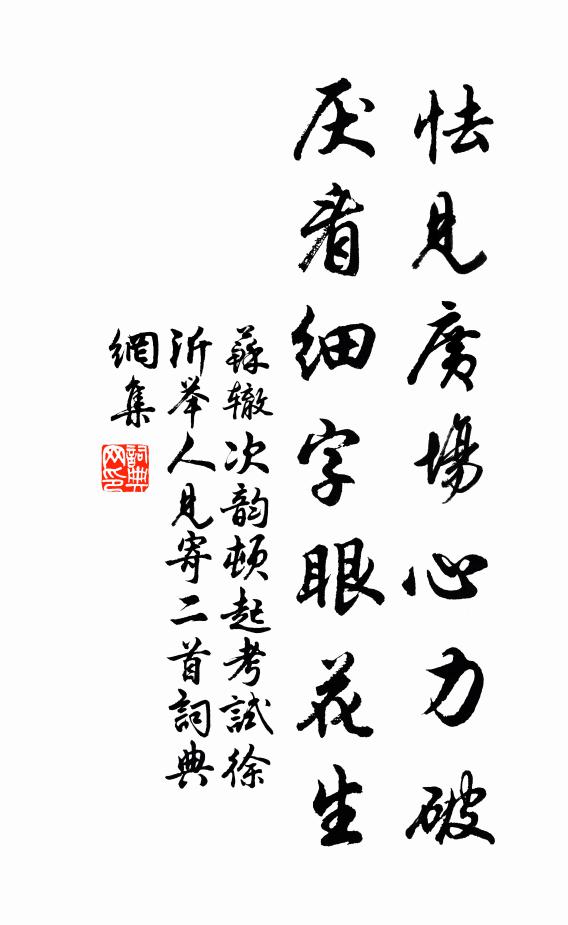 怯見廣場心力破
厌看细字眼花生
蘇辙次韵頓起考試徐
沂举人見寄二首詞典
網集
詞典
网印